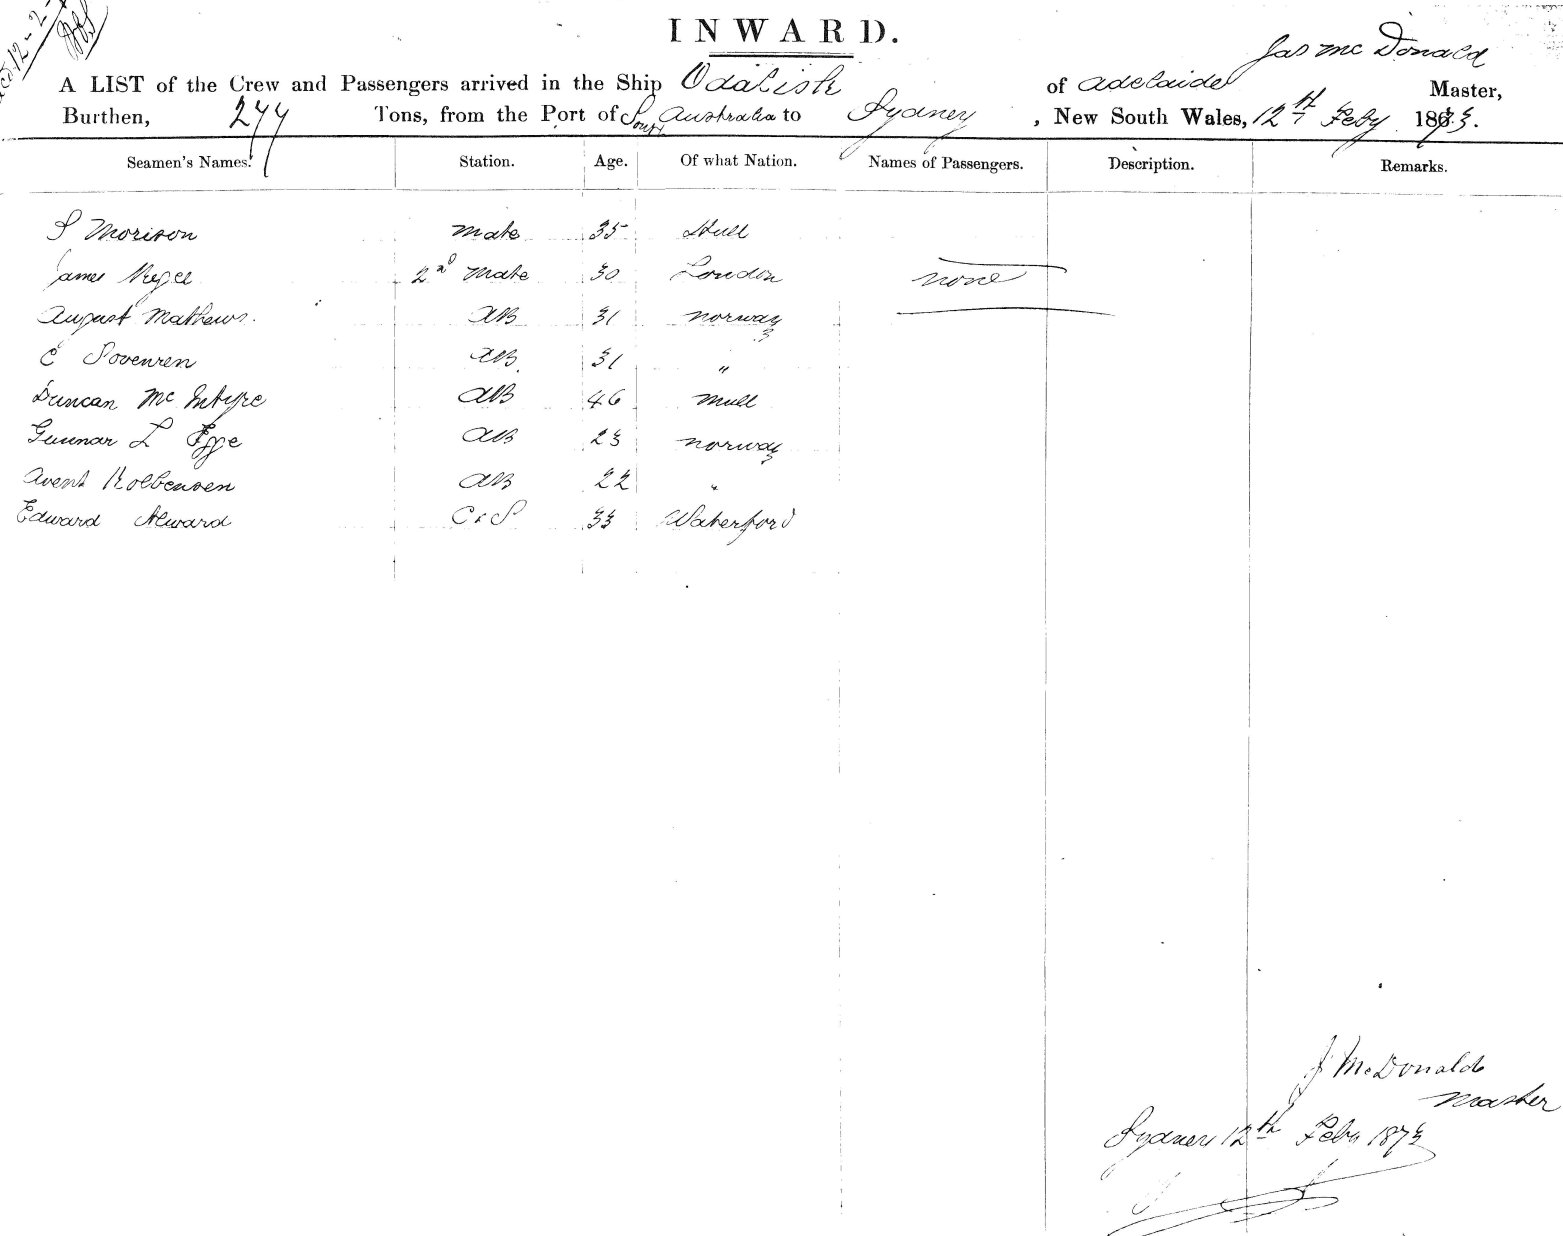 12-2-
INWARD.
Jas Mc Donald
A LIST of the Crew and Passengers arrived in the Ship Odalisk of Adelaide Master,
Burthen, 277 Tons, from the Port of South Australia to Sydney, New South Wales, 12th Feby 1873.
Seamen's Names. Station. Age. Of what Nation. Names of Passengers. Description. Remarks.
S Morison Mate 35 Hull
James 2nd Mate 30 London none
August Mathews. AB 31 Norway
C AB 31 "
Duncan Mc Intyre AB 46 Mull
Gunnar L AB 23 Norway
AB 22 "
Edward C & S 33 Waterford
J McDonald
Master
Sydney 12th Feby 1873